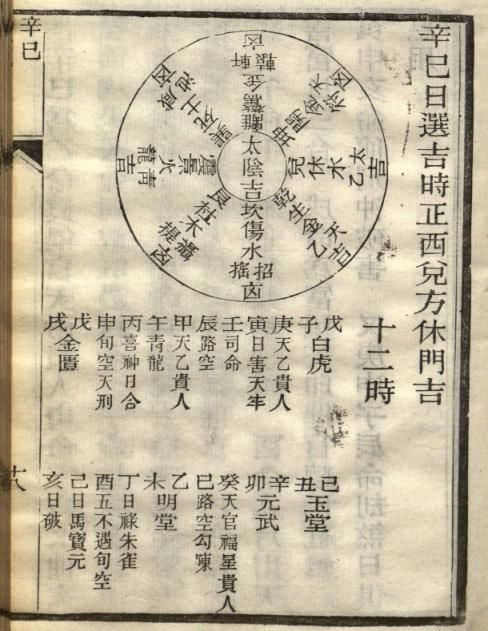 辛巳日選吉時正西兌方休門吉
十二時
太陰吉
離驚金軒轅凶
坤開金天符凶
兌休水太乙吉
乾生金天乙吉
坎傷水招搖凶
艮杜木攝提凶
震景火青龍吉
巽死土咸池凶
戊子白虎
己丑玉堂
庚天乙貴人
寅日害天牢
辛卯元武
壬司命
辰路空
癸天官福星貴人
巳路空勾陳
甲天乙貴人
午青龍
乙未明堂
丙喜神日合
申旬空天刑
丁日祿朱雀
酉五不遇旬空
戊戌金匱
己日馬寶元
亥日破
辛巳